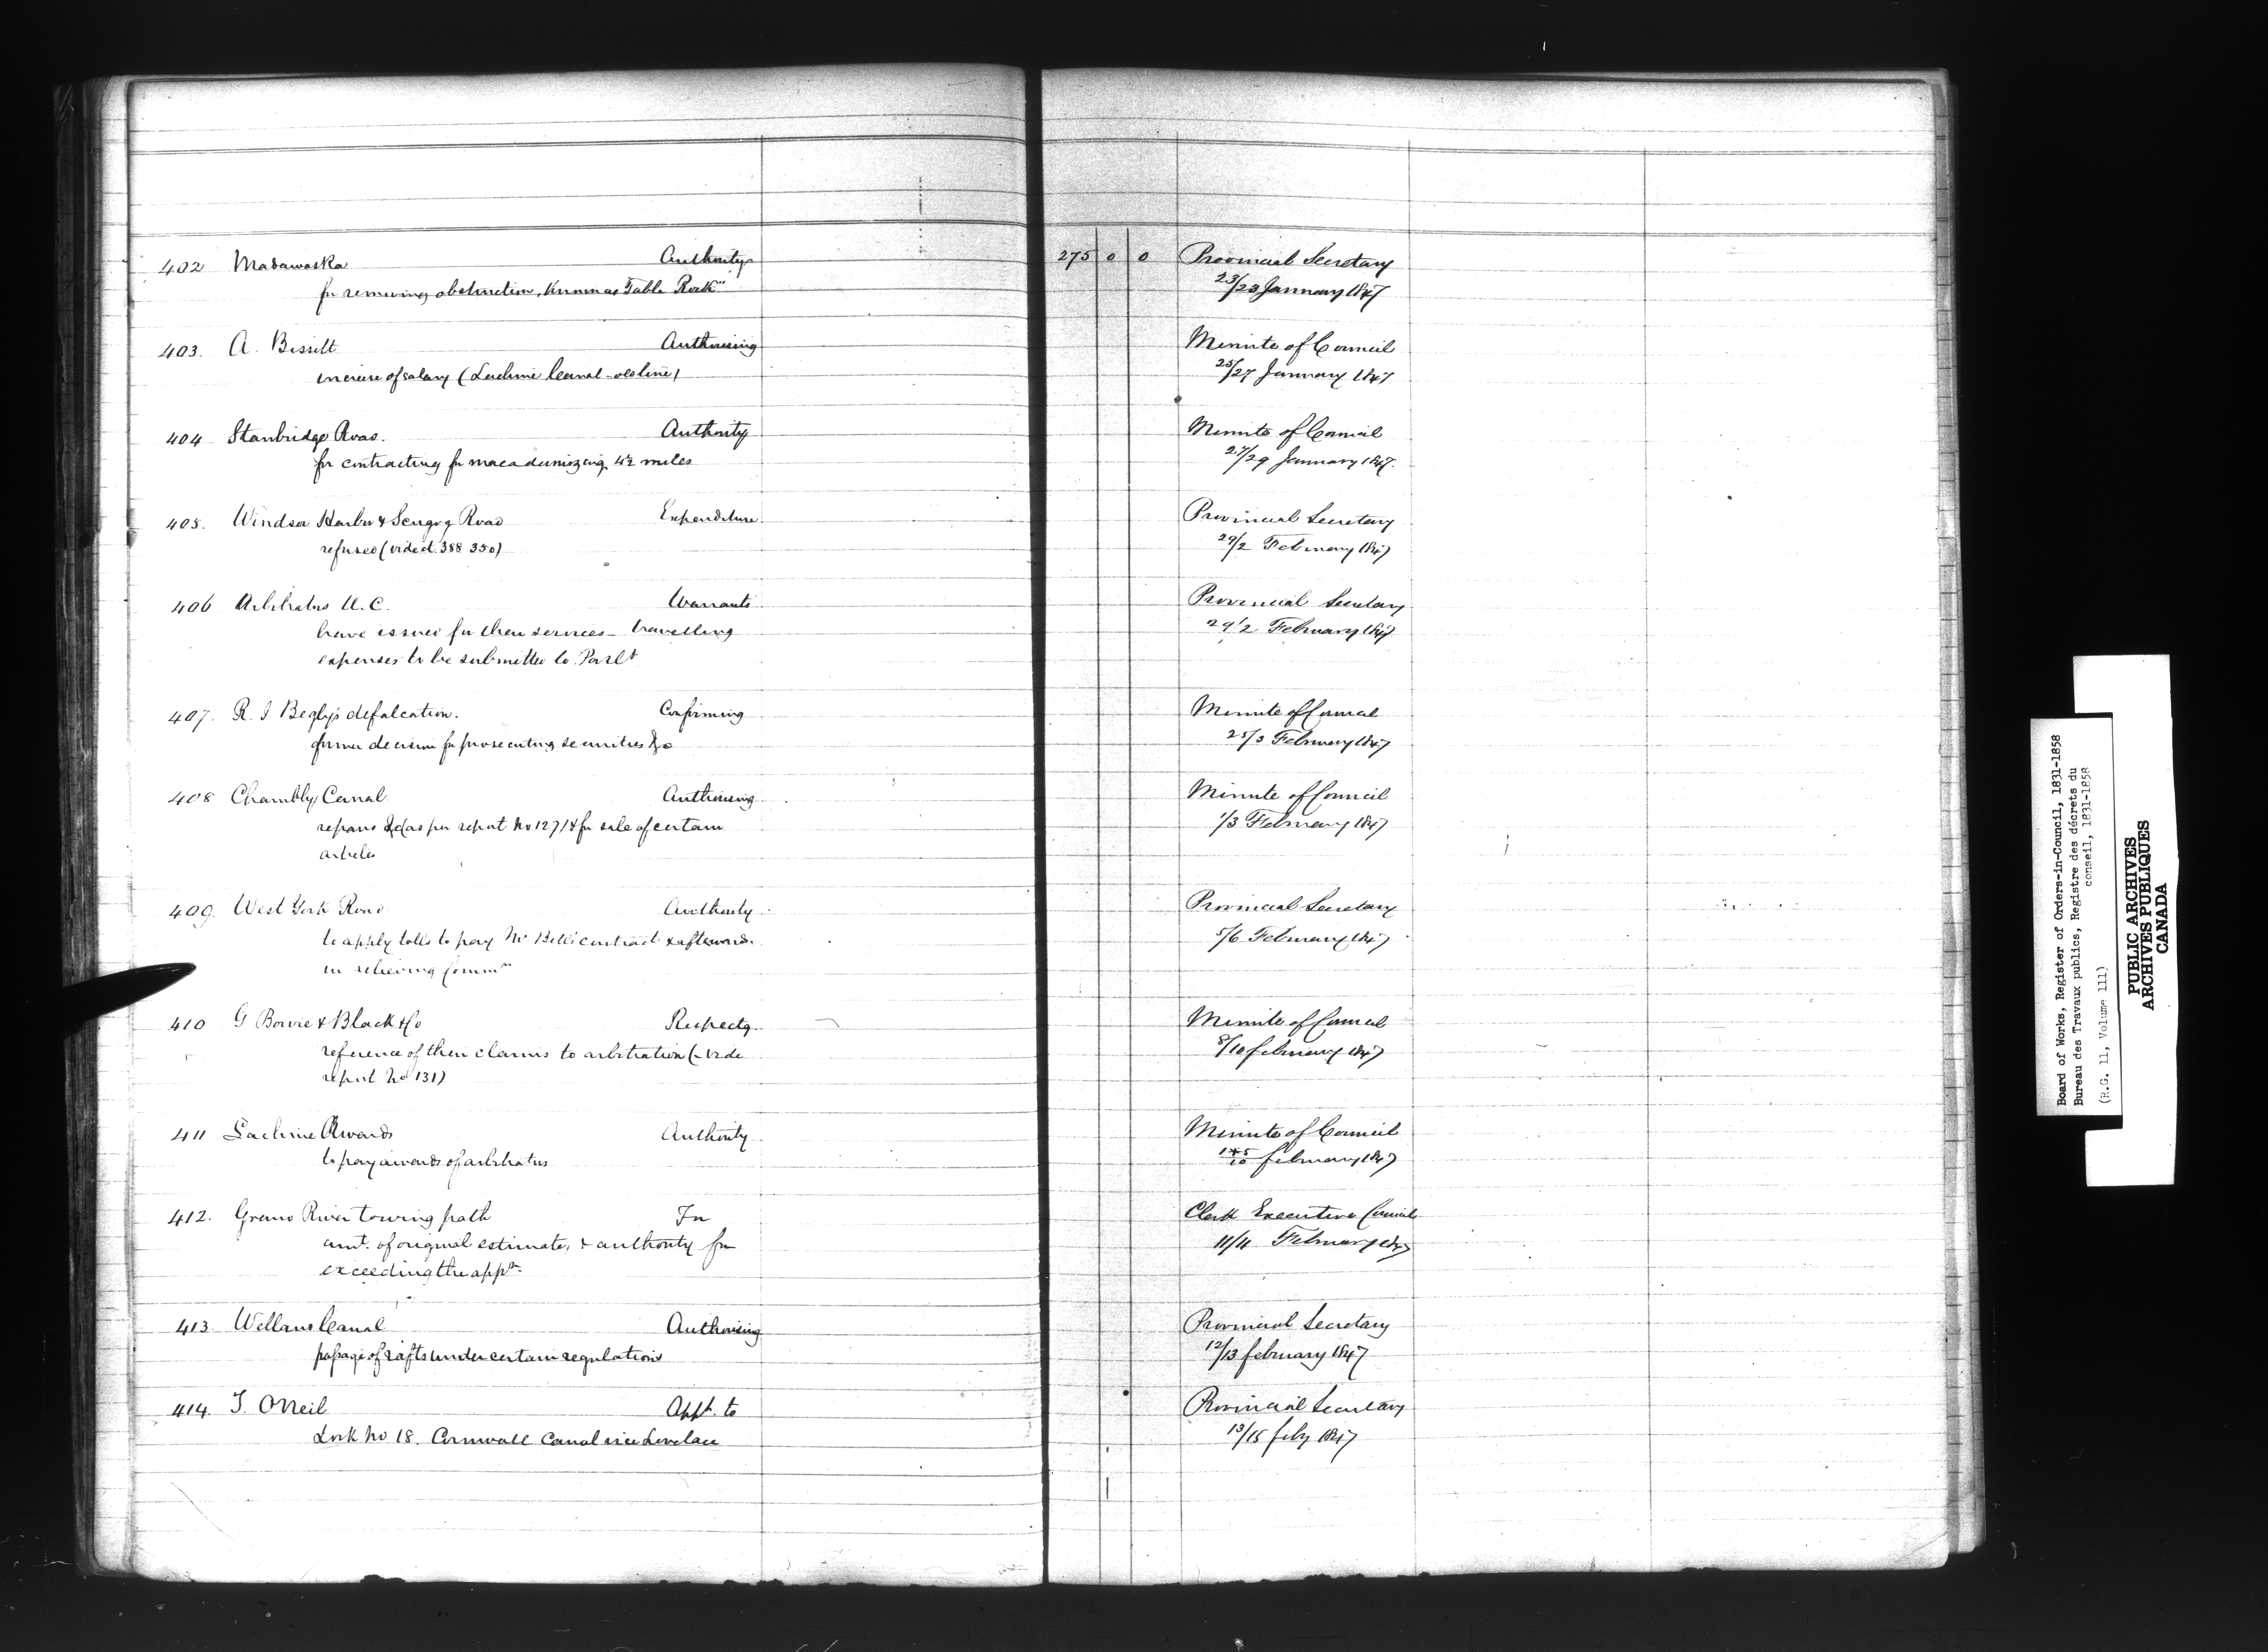 402 Madawaska Authority 275 0 0 Provincial Secretary
for removing obstruction, known as "Table Rock" 23/23 January 1847
403. A. Bissett Authorising Minute of Council
increase of salary (Lachine Canal - old line) 25/27 January 1847
404 Stanbridge Road. Authority Minute of Council
for contracting for macadamizing 4½ miles 27/29 January 1847.
405. Windsor Harbor & Scugog Road Expenditure Provincial Secretary
refused (vide 388 350) 29/2 February 1847
406 Arbitrators U.C. Warrants Provincial Secretary
have issued for their services - travelling 29/2 February 1847
expenses to be submitted to Parlt
407. R. I Begly's defalcation. Confirming Minute of Council
former decision for prosecuting securities &c 25/3 February 1847
408 Chambly Canal Authorising Minute of Council
repairs &c (as per report No 127) & for sale of certain 1/3 February 1847
articles
409. West York Road Authority Provincial Secretary
to apply tolls to pay Mr Bell's contract & afterwards 5/6 February 1847
in relieving Commn
410 G Bowie & Black & Co Respectg. Minute of Council
reference of their claims to arbitration (vide 8/10 february 1847
report No 131)
411 Lachine Awards Authority Minute of Council
to pay awards of arbitrators 1&5/10 february 1847
412. Grand River towing path For Clerk Executive Council
amt. of original estimate, & authority for 11/11 February 1847
exceeding the appn.
413. Welland Canal Authorising Provincial Secretary
passage of rafts under certain regulations 12/13 february 1847
414. T. O'Neil Appt. to Provincial Secretary
Lock No 18. Cornwall Canal vice Lovelace 13/15 feby 1847
Board of Works, Register of Orders-in-Council, 1831-1858
Bureau des Travaux publics, Registre des décrets du
conseil, 1831-1858
(R.G. 11, Volume 111)
PUBLIC ARCHIVES
ARCHIVES PUBLIQUES
CANADA